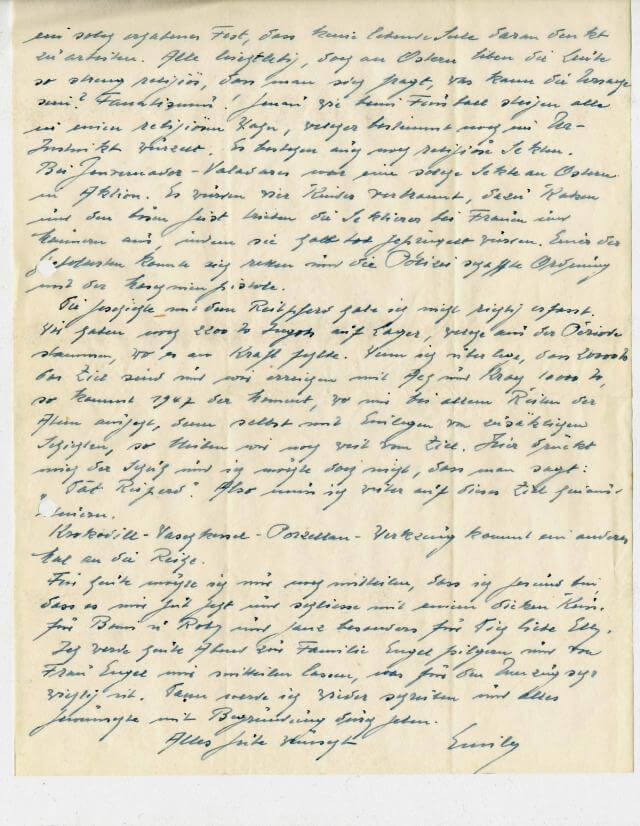 ein solch erhabenes Fest, dass keine lebende Seele daran denkt
zu arbeiten. Alle an Ostern leben die Leute
so streng religiös, dass man sich fragt, was kann die Ursache
sein? Fanatismus! Genau wie beim Fussball steigen alle
in einen religiösen welcher bestimmt noch im Ur-
Instinkt wurzelt. Es bestehen auch noch religiöse Sekten.
Bei Gouvernador-Valadares war eine solche Sekte an Ostern
in Aktion. Es wurden vier Kinder verbrannt, dazu Katzen
und den bösen Geist trieben die Sektierer bei Frauen und
Männern aus, indem sie halb tot geprügelt wurden. Einer der
konnte sich retten und die Polizei schaffte Ordnung
mit der Maschinenpistole.
Die Geschichte mit dem Reitpferd habe ich nicht richtig erfasst.
Wir haben noch 2200 to Ingots auf Lager, welche aus der Periode
stammen, wo es an Kraft fehlte. Wenn ich überlege, dass 20000 to
das Ziel sind und wir erreichen mit Ach und Krach 10000 to,
so kommt 1947 der Moment, wo mir bei allem Reiten der
Atem ausgeht, denn selbst mit Einlegen von zusätzlichen
Schichten, so bleiben wir noch weit vom Ziel. Hier drückt
mich der Schuh und ich möchte doch nicht, dass man sagt:
Also muss ich weiter auf dieses Ziel hinaus-
steuern.
Krokodill-Waschkessel-Porzellan-Verkzung kommt ein anderes
Mal an die Reihe.
Für heute möchte ich nur noch mitteilen, dass ich gesund bin
dass es mir gut geht und schliesse mit einem dicken Kuss
für Bani u Roby und ganz besonders für Dich liebe Elly.
Ich werde heute Abend zur Familie Engel pilgern und von
Frau Engel mir mitteilen lassen, was für den Umzug sehr
wichtig ist. Dann werde ich wieder schreiben und alles
gewünschte mit Begründung durchgeben.
Alles Gute wünscht Emily